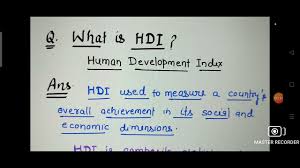 Q. What is HDI?
Human Development Index
Ans HDI used to measure a country's
overall achievement in its social and
economic dimensions.
HDI is composite
MASTER RECORDER